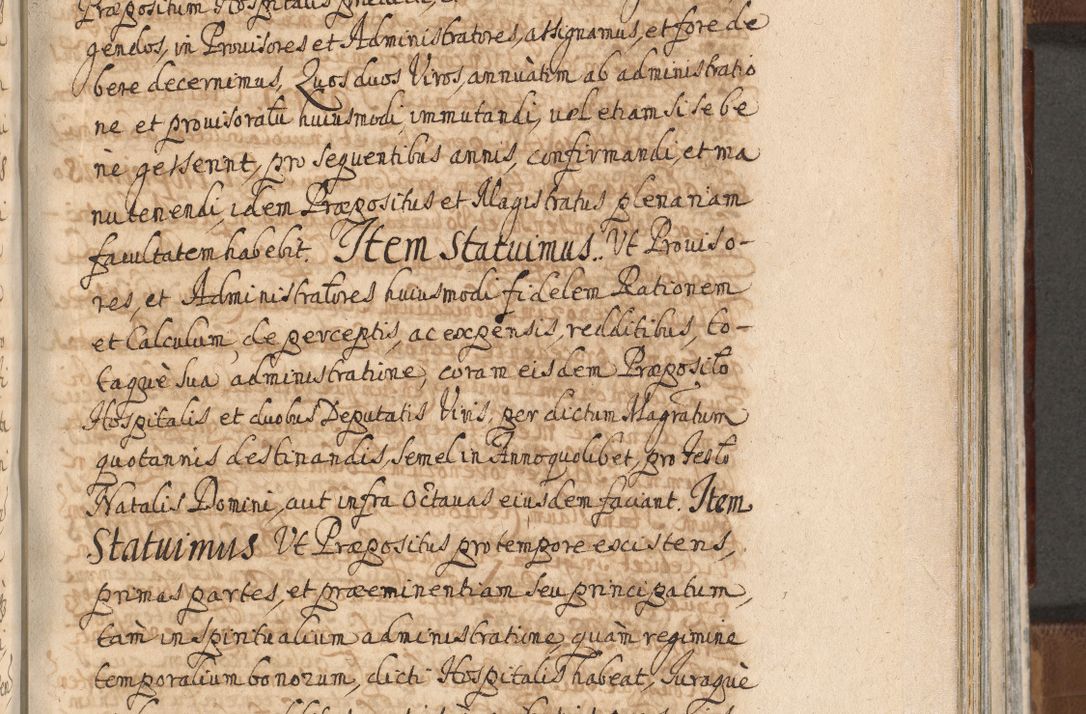 Præpositum Hospitalis
gendos, in Provisores et Administratores, assignamus, et fore de
bere decernimus, Quos duos Viros, annuàtim ab administratio
ne et provisoratu huiusmodi, immutandi, vel etiam si se be
ne gesserint, pro sequentibus annis, confirmandi, et ma
nutenendi, idem Præpositus et Magistratus plenariam
facultatem habebit. Item Statuimus. Ut Proviso-
res, et Administratores huiusmodi fidelem Rationem
et Calculum, de perceptis, ac expensis, redditibus, to-
taquè sua administratione, coram eisdem Præposito
Hospitalis et duobus Deputatis Viris, per dictum Magratum
quotannis destinandis, semel in Anno quolibet, pro festo
Natalis Domini, aut infra Octauas eiusdem faciant. Item
Statuimus Ut Præpositus pro tempore existens,
primas partes, et præeminentiam seu principatum,
tam in spiritualium administratione, quàm regimine
temporalium bonorum, dicti Hospitalis habeat, Iuraquè